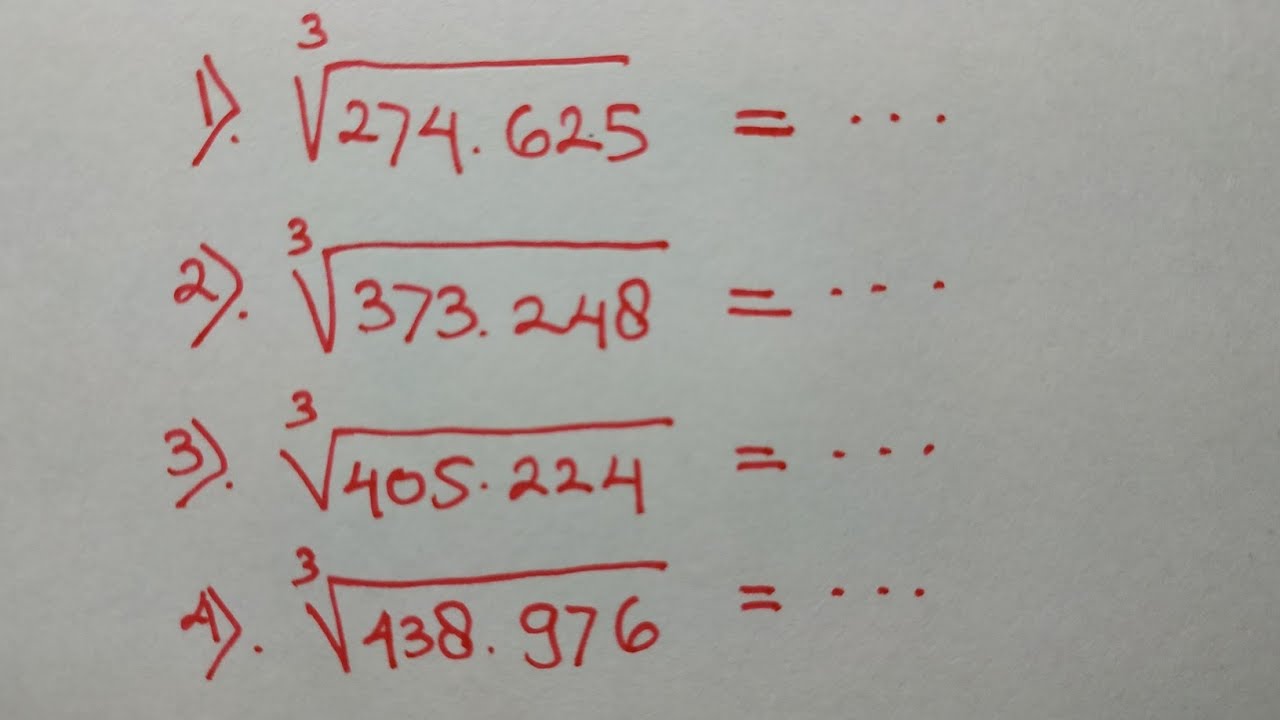 1). ∛274.625 = ...
2). ∛373.248 = ...
3). ∛405.224 = ...
4). ∛438.976 = ...